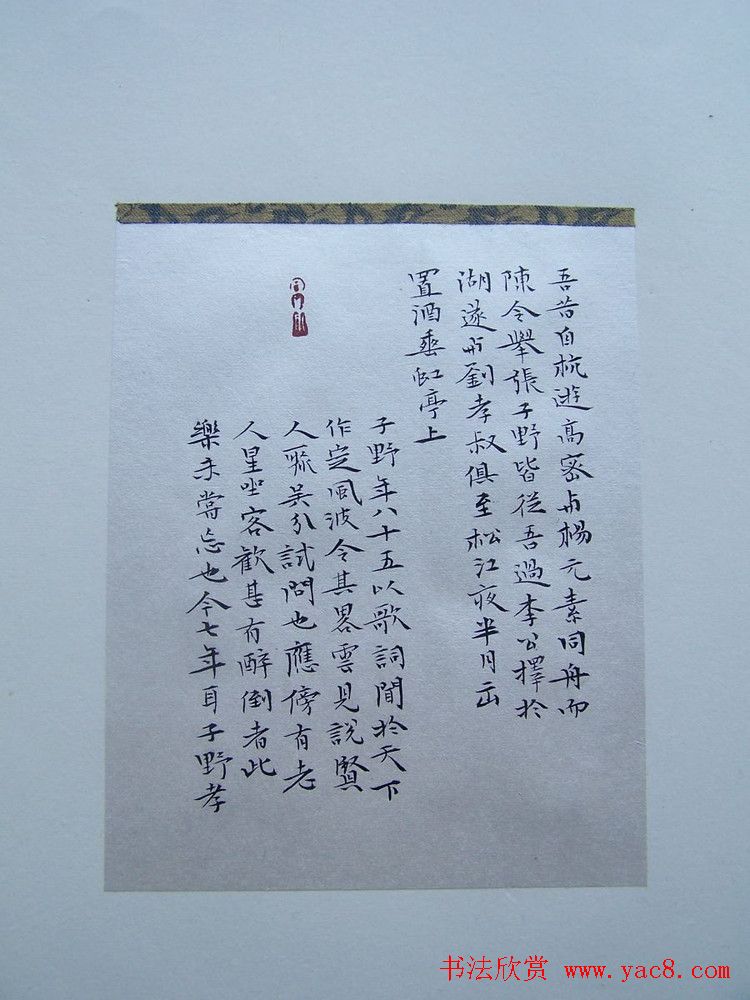 吾昔自杭遊高密与楊元素同舟而
陳令舉張子野皆從吾過李公擇於
湖遂与劉孝叔俱至松江夜半月出
置酒垂虹亭上
子野年八十五以歌詞聞於天下
作定風波令其畧雲見說賢
人聚吳分試問也應傍有老
人星坐客歡甚有醉倒者此
樂未嘗忘也今七年耳子野孝
书法欣赏 www.yac8.com